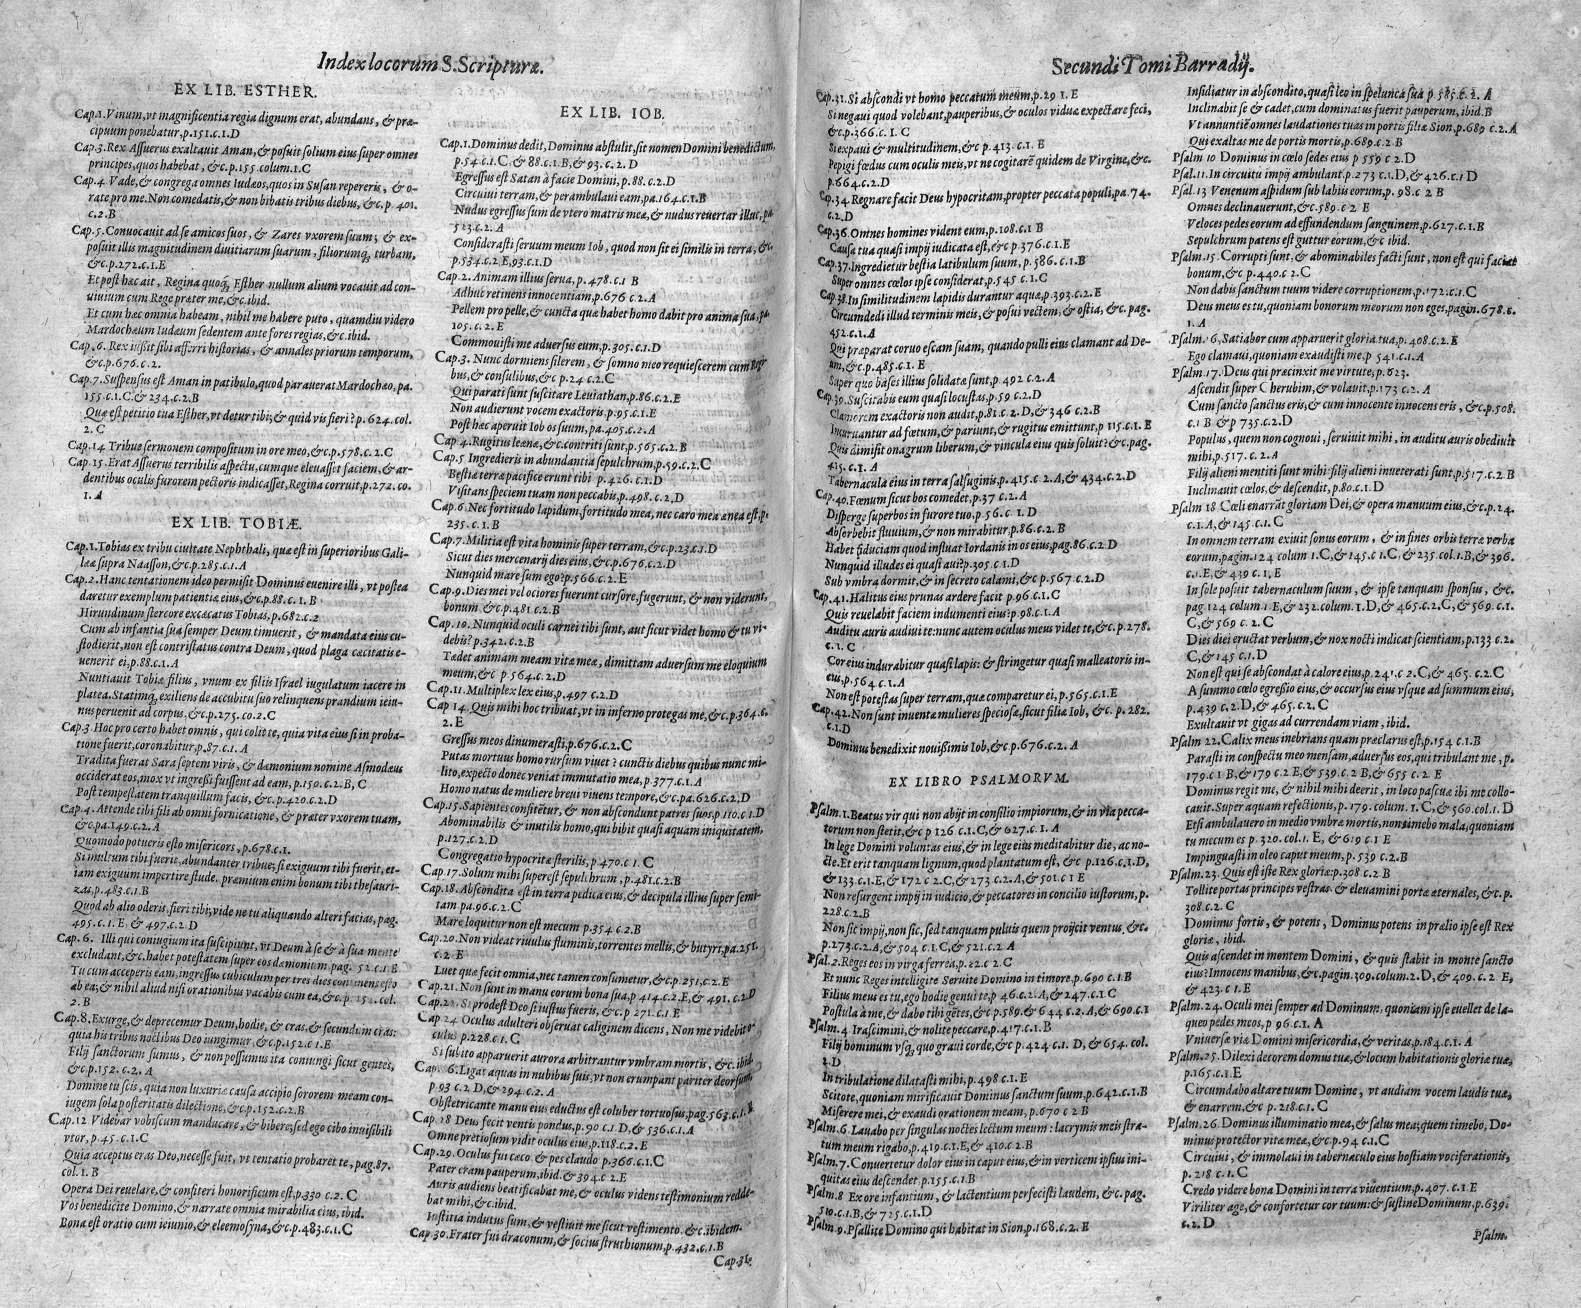 Index locorum S. Scripturæ.
EX LIB. ESTHER.
Cap.1. Vinum, vt magnificentia regia dignum erat, abundans, & præ-
cipuum ponebatur, p.151.c.1.D
Cap.3. Rex Assuerus exaltauit Aman, & posuit solium eius super omnes
principes, quos habebat, &c, p.155.colum.1.C
Cap.4. Vade, & congrega omnes Iudæos, quos in Susan repereris, & o-
rate pro me. Non comedatis, & non bibatis tribus diebus, &c, p. 401.
c.2.B
Cap.5. Conuocauit ad se amicos suos, & Zares vxorem suam; & ex-
posuit illis magnitudinem diuitiarum suarum, filiorumq́, turbam,
&c.p.272.c.1.E
Et post hæc ait, Regina quoq́, Esther nullum alium vocauit ad con-
uiuium cum Rege præter me, &c.ibid.
Et cum hæc omnia habeam, nihil me habere puto, quamdiu videro
Mardochæum Iudæum sedentem ante fores regias, &c.ibid.
Cap.6. Rex iussit sibi afferri historias, & annales priorum temporum,
&c.p.676.c.2.
Cap.7. Suspensus est Aman in patibulo, quod parauerat Mardochæo, pa.
155.c.1.C.& 234.c.2.B
Quæ est petitio tua Esther, vt detur tibi; & quid vis fieri? p.624.col.
2.C
Cap.14 Tribue sermonem compositum in ore meo, &c.p.578.c.2.C
Cap.15. Erat Assuerus terribilis aspectu, cumque eleuasset faciem, & ar-
dentibus oculis furorem pectoris indicasset, Regina corruit, p.272.co.
1.A
EX LIB. TOBIÆ.
Cap.1. Tobias ex tribu ciuitate Nephthali, quæ est in superioribus Gali-
lææ supra Naasson, &c.p.285.c.1.A
Cap.2. Hanc tentationem ideo permisit Dominus euenire illi, vt postea
daretur exemplum patientiæ eius, &c.p.88.c.1.B
Hirundinum stercore excæcatus Tobias, p.682.c.2
Cum ab infantia sua semper Deum timuerit, & mandata eius cu-
stodierit, non est contristatus contra Deum, quod plaga cæcitatis e-
uenerit ei, p.88.c.1.A
Nuntiauit Tobiæ filius, vnum ex filiis Israel iugulatum iacere in
platea. Statimq́, exiliens de accubitu suo relinquens prandium ieiu-
nus peruenit ad corpus, &c.p.275.co.2.C
Cap.3 Hoc pro certo habet omnis, qui colit te, quia vita eius si in proba-
tione fuerit, coronabitur, p.87.c.1.A
Tradita fuerat Sara septem viris, & dæmonium nomine Asmodæus
occiderat eos, mox vt ingressi fuissent ad eam, p.150.c.2.B, C
Post tempestatem tranquillum facis, &c.p.420.c.2.D
Cap.4. Attende tibi fili ab omni fornicatione, & præter vxorem tuam,
&c.pa.149.c.2.A
Quomodo potueris esto misericors, p.678.c.1.
Si multum tibi fuerit, abundanter tribue; si exiguum tibi fuerit, et-
iam exiguum impertire stude, præmium enim bonum tibi thesauri-
zas, p.483.c.1.B
Quod ab alio oderis, fieri tibi; vide ne tu aliquando alteri facias, pag.
495.c.1.E. & 497.c.2.D
Cap.6. Illi qui coniugium ita suscipiunt, vt Deum à se & à sua mente
excludant, &c. habet potestatem super eos dæmonium, pag. 52.c.1 E
Tu cum acceperis eam, ingressus cubiculum per tres dies continens esto
ab ea; & nihil aliud nisi orationibus vacabis cum ea, &c.p.152.col.
2.B
Cap.8. Exurge, & deprecemur Deum, hodie, & cras, & secundum cras:
quia his tribus noctibus Deo iungimur, &c.p.152.c.1.E
Filij sanctorum sumus, & non possumus ita coniungi sicut gentes,
&c.p.152.c.2.A
Domine tu scis, quia non luxuriæ causa accipio sororem meam con-
iugem sola posteritatis dilectione, &c.p.152.c.2.B
Cap.12 Videbar vobiscum manducare, & bibere; sed ego cibo inuisibili
vtor, p.45.c.1.C
Quia acceptus eras Deo, necesse fuit, vt tentatio probaret te, pag.87.
col.1.B
Opera Dei reuelare, & confiteri honorificum est, p.330 c.2.C
Vos benedicite Domino, & narrate omnia mirabilia eius, ibid.
Bona est oratio cum ieiunio, & eleemosyna, &c.p.483.c.1.C
EX LIB. IOB.
Cap.1. Dominus dedit, Dominus abstulit, sit nomen Domini benedictum,
p.54 c.1.C. & 88.c.1.B, & 93.c.2.D
Egressus est Satan à facie Domini, p.88.c.2.D
Circuiui terram, & perambulaui eam, pa.164.c.1.B
Nudus egressus sum de vtero matris meæ, & nudus reuertar illuc, pa.
523.c.2.A
Considerasti seruum meum Iob, quod non sit ei similis in terra, &c.
p.534.c.2 E, 93.c.1.D
Cap.2. Animam illius serua, p.478.c.1 B
Adhuc retinens innocentiam, p.676 c.2.A
Pellem pro pelle, & cuncta quæ habet homo dabit pro anima sua, pa.
105.c.2.E
Commouisti me aduersus eum, p.305.c.1.D
Cap.3. Nunc dormiens silerem, & somno meo requiescerem cum Regi-
bus, & consulibus, &c p.24 c.2.C
Qui parati sunt suscitare Leuiathan, p.86.c.2.E
Non audierunt vocem exactoris, p.95.c.1.E
Post hæc aperuit Iob os suum, pa.405.c.2.A
Cap 4. Rugitus leæna, &c. contriti sunt, p.565.c.2.B
Cap.5 Ingredieris in abundantia sepulchrum, p.59.c.2.C
Bestiæ terræ pacificæ erunt tibi p.426.c.1.D
Visitans speciem tuam non peccabis, p.498.c.2,D
Cap.6. Nec fortitudo lapidum, fortitudo mea, nec caro mea ænea est, p.
235.c.1.B
Cap.7. Militia est vita hominis super terram, &c.p.23.c.1.D
Sicut dies mercenarij dies eius, &c.p.676.c.2.D
Nunquid mare sum ego? p.566.c.2.E
Cap.9. Dies mei velociores fuerunt cursore, fugerunt, & non viderunt,
bonum &c.p.481 c.2.B
Cap.10. Nunquid oculi carnei tibi sunt, aut sicut videt homo & tu vi-
debis? p.342.c.2.B
Tædet animam meam vitæ meæ, dimittam aduersum me eloquium
meum, &c p 564.c.2.D
Cap.11. Multiplex lex eius, p.497 c.2.D
Cap 14. Quis mihi hoc tribuat, vt in inferno protegas me, &c.p.364.c.
2.E
Gressus meos dinumerasti, p.676.c.2.C
Putas mortuus homo rursum viuet? cunctis diebus quibus nunc mi-
lito, expecto donec veniat immutatio mea, p.377.c.1.A
Homo natus de muliere breui viuens tempore, &c.pa.626.c.2,D
Cap.15. Sapientes confitētur, & non abscondunt patres suos, p 110.c 1 D
Abominabilis & inutilis homo, qui bibit quasi aquam iniquitatem,
p.127.c.2.D
Congregatio hypocritæ sterilis, p.470.c 1.C
Cap.17. Solum mihi superest sepulchrum, p.481.c.2.B
Cap.18. Abscondita est in terra pedica eius, & decipula illius super semi-
tam. pa.96.c.2.C
Mare loquitur non est mecum p.354 c.2.B
Cap.20. Non videat riuulus fluminis, torrentes mellis, & butyri, pa.251.
c.2 E
Luet quæ fecit omnia, nec tamen consumetur, &c.p.251.c.2.E
Cap.21. Non sunt in manu eorum bona sua, p 414.c.2.E, & 491.c.2.D
Cap.22. Si prodest Deo si iustus fueris, &c p 271.c.1 E
Cap 24 Oculus adulteri obseruat caliginem dicens, Non me videbit o-
culus p.228.c.1.C
Si subito apparuerit aurora arbitrantur vmbram mortis, &c.ibid.
Cap. 6. Ligat aquas in nubibus suis, vt non erumpant pariter deorsum,
p 93 c.2 D, & 294.c.2.A
Obstetricante manu eius eductus est coluber tortuosus, pag.563.c.1.
Cap.28 Deus fecit ventis pondus, p.90 c.1.D, & 536.c.1.A
Omne pretiosum vidit oculus eius, p.118.c.2.E
Cap.29. Oculus fui cæco. & pes claudo p.366.c.1.C
Pater eram pauperum, ibid. & 394.c 2.E
Auris audiens beatificabat me, & oculus videns testimonium redde-
bat mihi, &c.ibid.
Iustitia indutus sum, & vestiuit me sicut vestimento. &c.ibidem.
Cap.30. Frater fui draconum, & socius struthionum, p.432.c.1.B
Cap.31.
Secundi Tomi Barradij.
Cap.31. Si abscondi vt homo peccatum meum, p.29 1.E
Si negaui quod volebant, pauperibus, & oculos viduæ expectare feci,
&c.p.366.c.1.C
Si expaui & multitudinem, &c p.413.c.1.E
Pepigi fœdus cum oculis meis, vt ne cogitarē quidem de Virgine, &c.
p.664.c.2.D
Cap.34. Regnare facit Deus hypocritam, propter peccata populi, pa.74.
c.2.D
Cap.36. Omnes homines vident eum, p.108.c.1 B
Causa tua quasi impij iudicata est, &c p.376.c.1.E
Cap.37. Ingredietur bestia latibulum suum, p.586.c.1.B
Super omnes cœlos ipse considerat, p.545 c.1.C
Cap.38. In similitudinem lapidis durantur aquæ, p.393.c.2.E
Circumdedi illud terminis meis, & posui vectem, & ostia, &c.pag.
452.c.1.A
Qui præparat coruo escam suam, quando pulli eius clamant ad De-
um, &c.p.485.c.1.E
Super quo bases illius solidatæ sunt, p.492 c.2.A
Cap.39. Suscitabis eum quasi locustas, p.59 c.2.D
Clamorem exactoris non audit, p.81.c 2.D, & 346 c.2.B
Incuruantur ad fœtum, & pariunt, & rugitus emittunt, p 115.c.1.E
Quis dimisit onagrum liberum, & vincula eius quis soluit? &c.pag.
415.c.1.A
Tabernacula eius in terra salsuginis, p.415.c.2.A, & 434.c.2.D
Cap.40. Fœnum sicut bos comedet, p.37 c.2.A
Disperge superbos in furore tuo, p.56.c.1.D
Absorbebit fluuium, & non mirabitur, p.86.c.2.B
Habet fiduciam quod influat Iordanis in os eius, pag.86.c.2 D
Nunquid illudes ei quasi aui? p.305.c.1.D
Sub vmbra dormit, & in secreto calami, &c p.567 c.2.D
Cap.41. Halitus eius prunas ardere facit p.96.c.1.C
Quis reuelabit faciem indumenti eius? p.98.c.1.A
Auditu auris audiui te: nunc autem oculus meus videt te, &c.p.278.
c.1.C
Cor eius indurabitur quasi lapis: & stringetur quasi malleatoris in-
cus, p.564 c.1.A
Non est potestas super terram, quæ comparetur ei, p.565.c.1.E
Cap.42. Non sunt inuentæ mulieres speciosæ, sicut filiæ Iob, &c. p.282.
c.1.D
Dominus benedixit nouissimis Iob, &c p.676.c.2.A
EX LIBRO PSALMORVM.
Psalm.1. Beatus vir qui non abijt in consilio impiorum, & in via pecca-
torum non stetit, &c p 126.c.1.C, & 627.c.1.A
In lege Domini voluntas eius, & in lege eius meditabitur die, ac no-
cte. Et erit tanquam lignum, quod plantatum est, &c p.126.c.1.D,
& 133.c.1.E, & 172 c.2.C, & 273 c.2.A, & 501.c 1 E
Non resurgent impij in iudicio, & peccatores in concilio iustorum, p.
228.c.2.B
Non sic impij, non sic, sed tanquam puluis quem proijcit ventus, &c.
p.273.c.2.A, & 504 c.1.C, & 521.c.2 A
Psal.2. Reges eos in virga ferrea, p.22.c 2.C
Et nunc Reges intelligite Seruite Domino in timore, p.690 c.1 B
Filius meus es tu, ego hodie genui te, p 46.c.2.A, & 247.c.1 C
Postula à me, & dabo tibi gētes, &c.p.589.& 644 c.2.A, & 690.c.1
Psalm.4 Irascimini, & nolite peccare, p.417.c.1.B
Filij hominum vsq́, quo graui corde, &c p.424 c.1.D, & 654.col.
2.D
In tribulatione dilatasti mihi, p.498 c.1.E
Scitote, quoniam mirificauit Dominus sanctum suum, p.642.c.1.B
Miserere mei, & exaudi orationem meam, p.670 c 2 B
Psalm.6. Lauabo per singulas noctes lectum meum: lacrymis meis stra-
tum meum rigabo, p.419.c.1.E, & 410.c.2.B
Psalm.7. Conuertetur dolor eius in caput eius, & in verticem ipsius ini-
quitas eius descendet p.155.c.1.B
Psalm.8 Ex ore infantium, & lactentium perfecisti laudem, &c.pag.
510.c.1.B, & 725.c.1.D
Psalm.9. Psallite Domino qui habitat in Sion, p.168.c.2.E
Insidiatur in abscondito, quasi leo in spelunca sua p 585.c.2.A
Inclinabit se & cadet, cum dominatus fuerit pauperum, ibid.B
Vt annuntiē omnes laudationes tuas in portis filiæ Sion, p.689 c.2.A
Qui exaltas me de portis mortis, p.689.c.2.B
Psalm 10 Dominus in cœlo sedes eius p 559 c 2.D
Psal.11. In circuitu impij ambulant, p.273 c.1.D, & 426.c.1 D
Psal.13 Venenum aspidum sub labiis eorum, p.98.c 2 B
Omnes declinauerunt, &c.589.c 2 E
Veloces pedes eorum ad effundendum sanguinem, p.627.c.1.B
Sepulchrum patens est guttur eorum, &c ibid.
Psalm.15. Corrupti sunt, & abominabiles facti sunt, non est qui faciat
bonum, &c p.440.c 2.C
Non dabis sanctum tuum videre corruptionem, p.172.c.1.C
Deus meus es tu, quoniam bonorum meorum non eges, pagin.678.c.
1.A
Psalm. 6. Satiabor cum apparuerit gloria tua, p.408.c.2.E
Ego clamaui, quoniam exaudisti me, p 541.c.1.A
Psalm.17. Deus qui præcinxit me virtute, p.623.
Ascendit super Cherubim, & volauit, p.173 c.2.A
Cum sancto sanctus eris, & cum innocente innocens eris, &c.p.508.
c.1 B & p 735.c.2.D
Populus, quem non cognoui, seruiuit mihi, in auditu auris obediuit
mihi, p.517.c.2.A
Filij alieni mentiti sunt mihi: filij alieni inueterati sunt, p.517.c.2 B
Inclinauit cœlos, & descendit, p.80.c.1.D
Psalm 18 Cœli enarrāt gloriam Dei, & opera manuum eius, &c.p.24.
c.1.A, & 145 c.1.C
In omnem terram exiuit sonus eorum, & in fines orbis terræ verba
eorum, pagin.124 colum 1.C, & 145.c 1.C, & 235 col.1.B, & 396.
c.1.E, & 439 c.1,E
In sole posuit tabernaculum suum, & ipse tanquam sponsus, &c.
pag.124 colum.1 E, & 232.colum.1.D, & 465.c.2.C, & 569.c.1.
C, & 569 c.2.C
Dies diei eructat verbum, & nox nocti indicat scientiam, p.133 c.2.
C, & 145 c.1.D
Non est qui se abscondat à calore eius, p.241.c 2.C, & 465.c.2.C
A summo cœlo egressio eius, & occursus eius vsque ad summum eius,
p.439 c.2.D, & 465.c.2.C
Exultauit vt gigas ad currendam viam, ibid.
Psalm 22. Calix meus inebrians quam præclarus est, p.154 c.1.B
Parasti in conspectu meo mensam, aduersus eos, qui tribulant me, p.
179.c 1 B, & 179 c.2 E, & 539.c.2 B, & 655 c.2 E
Dominus regit me, & nihil mihi deerit, in loco pascuæ ibi me collo-
cauit. Super aquam refectionis, p.179.colum.1.C, & 560.col.1.D
Etsi ambulauero in medio vmbræ mortis, non timebo mala, quoniam
tu mecum es p.320.col.1.E, & 619 c.1 E
Impinguasti in oleo caput meum, p.539 c.2.B
Psalm.23. Quis est iste Rex gloriæ: p.308 c.2 B
Tollite portas principes vestras. & eleuamini portæ æternales, &c.p.
308.c.2.C
Dominus fortis, & potens, Dominus potens in prælio ipse est Rex
gloriæ, ibid.
Quis ascendet in montem Domini, & quis stabit in monte sancto
eius? Innocens manibus, &c.pagin.309.colum.2.D, & 409.c.2 E,
& 423.c.1 E
Psalm.24. Oculi mei semper ad Dominum, quoniam ipse euellet de la-
queo pedes meos, p 96.c.1.A
Vniuersæ viæ Domini misericordia, & veritas, p.184.c.1.A
Psalm.25. Dilexi decorem domus tuæ, & locum habitationis gloriæ tuæ,
p.165.c.1.E
Circumdabo altare tuum Domine, vt audiam vocem laudis tuæ,
& enarrem, &c p.218.c.1.C
Psalm.26. Dominus illuminatio mea, & salus mea; quem timebo, Do-
minus protector vitæ meæ, &c p.94 c.1.C
Circuiui, & immolaui in tabernaculo eius hostiam vociferationis,
p.218 c.1.C
Credo videre bona Domini in terra viuentium, p.407.c.1 E
Viriliter age, & confortetur cor tuum: & sustine Dominum, p.639.
c.2.D
Psalm.